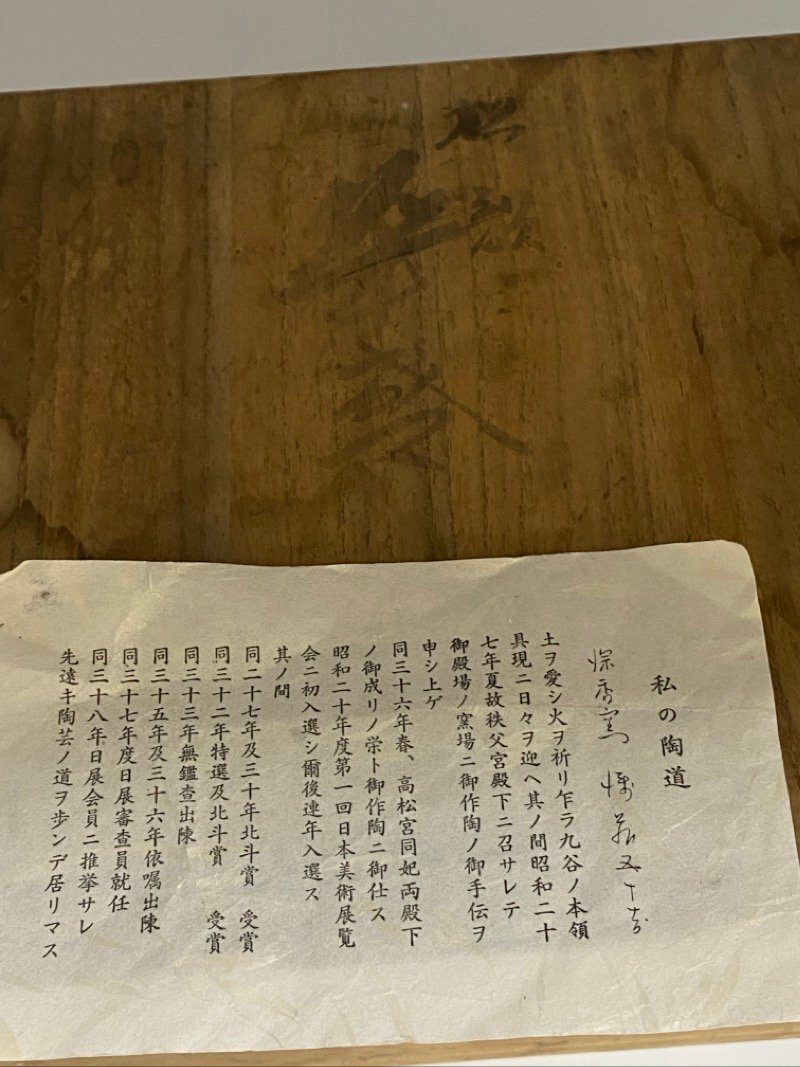 私の陶道
深香窯　浅蔵五十吉
土ヲ愛シ火ヲ祈リ乍ラ九谷ノ本領
具現ニ日々ヲ迎ヘ其ノ間昭和二十
七年夏故秩父宮殿下ニ召サレテ
御殿場ノ窯場ニ御作陶ノ御手伝ヲ
申シ上ゲ
同三十六年春、高松宮同妃両殿下
ノ御成リノ栄ト御作陶ニ御仕ス
昭和二十年度第一回日本美術展覧
会ニ初入選シ爾後連年入選ス
其ノ間
同二十七年及三十年北斗賞　受賞
同三十二年特選及北斗賞　受賞
同三十三年無鑑査出陳
同三十五年及三十六年依嘱出陳
同三十七年度日展審査員就任
同三十八年日展会員ニ推挙サレ
先遠キ陶芸ノ道ヲ歩ンデ居リマス